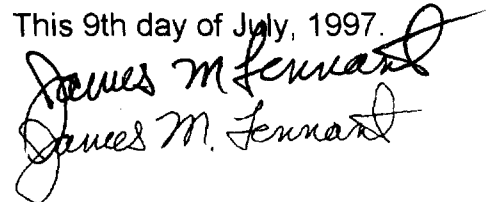 This 9th day of July, 1997.
James M Tennant
James M. Tennant